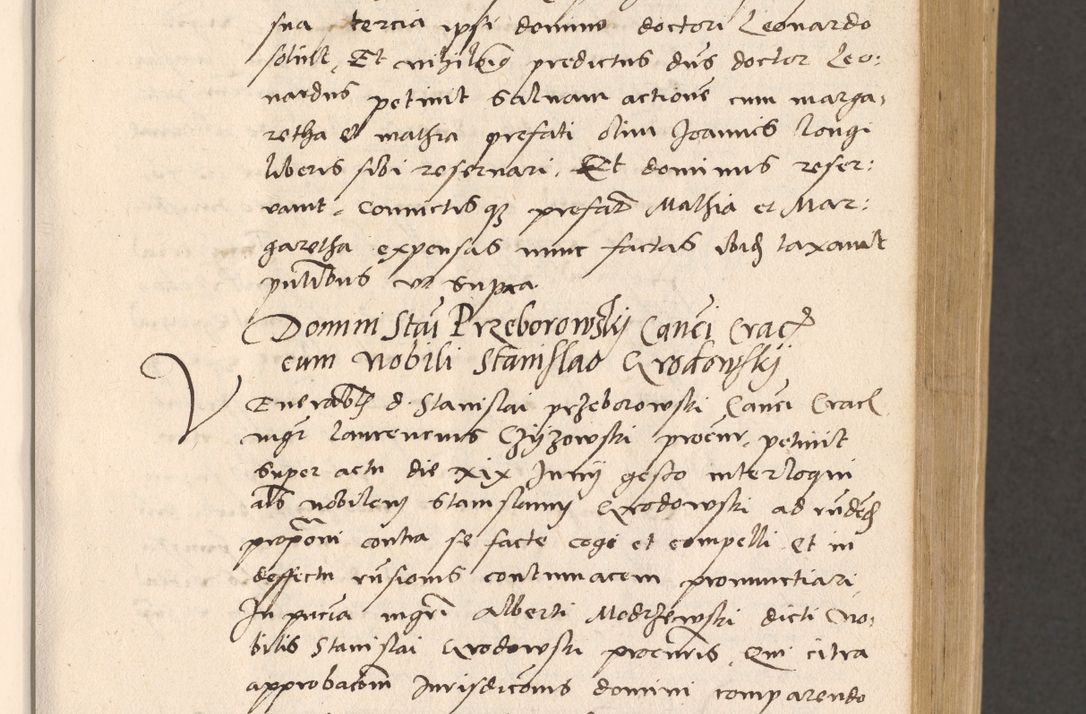 sua tercia ipsi domino doctori Leonardo
solvit, Et nihilo predictus dns doctor Leo:
nardus petivit salvam actione cum marga,
retha et mathia prefati olim Joannis Longi
liberis sibi reservari. Et dominus reser:
vavit. Convictis q prefat Mathia et Mar:
garetha expensas nunc factas ibid taxavit
pntibus ut supra.
Domini Stai Przeborowskij Canci Crac
cum Nobili Stanislao Grodowskij
Venerabilis d Stanislai przeborowski Canci Crac
mgr Laurencius Czyzowski procur, petivit
super actu die xix Junij gesto interloqui
als nobilem Stanislaum Grodowski ad rndend
proponi contra se facte cogi et compelli Et in
deffectu rnsionis contumacem pronunctiari,
In pncia mgri Alberti Modrzewski dicti No,
bilis Stanislai Grodowski procuris, Qui citra
approbacom Jurisdicomis domini comparendo